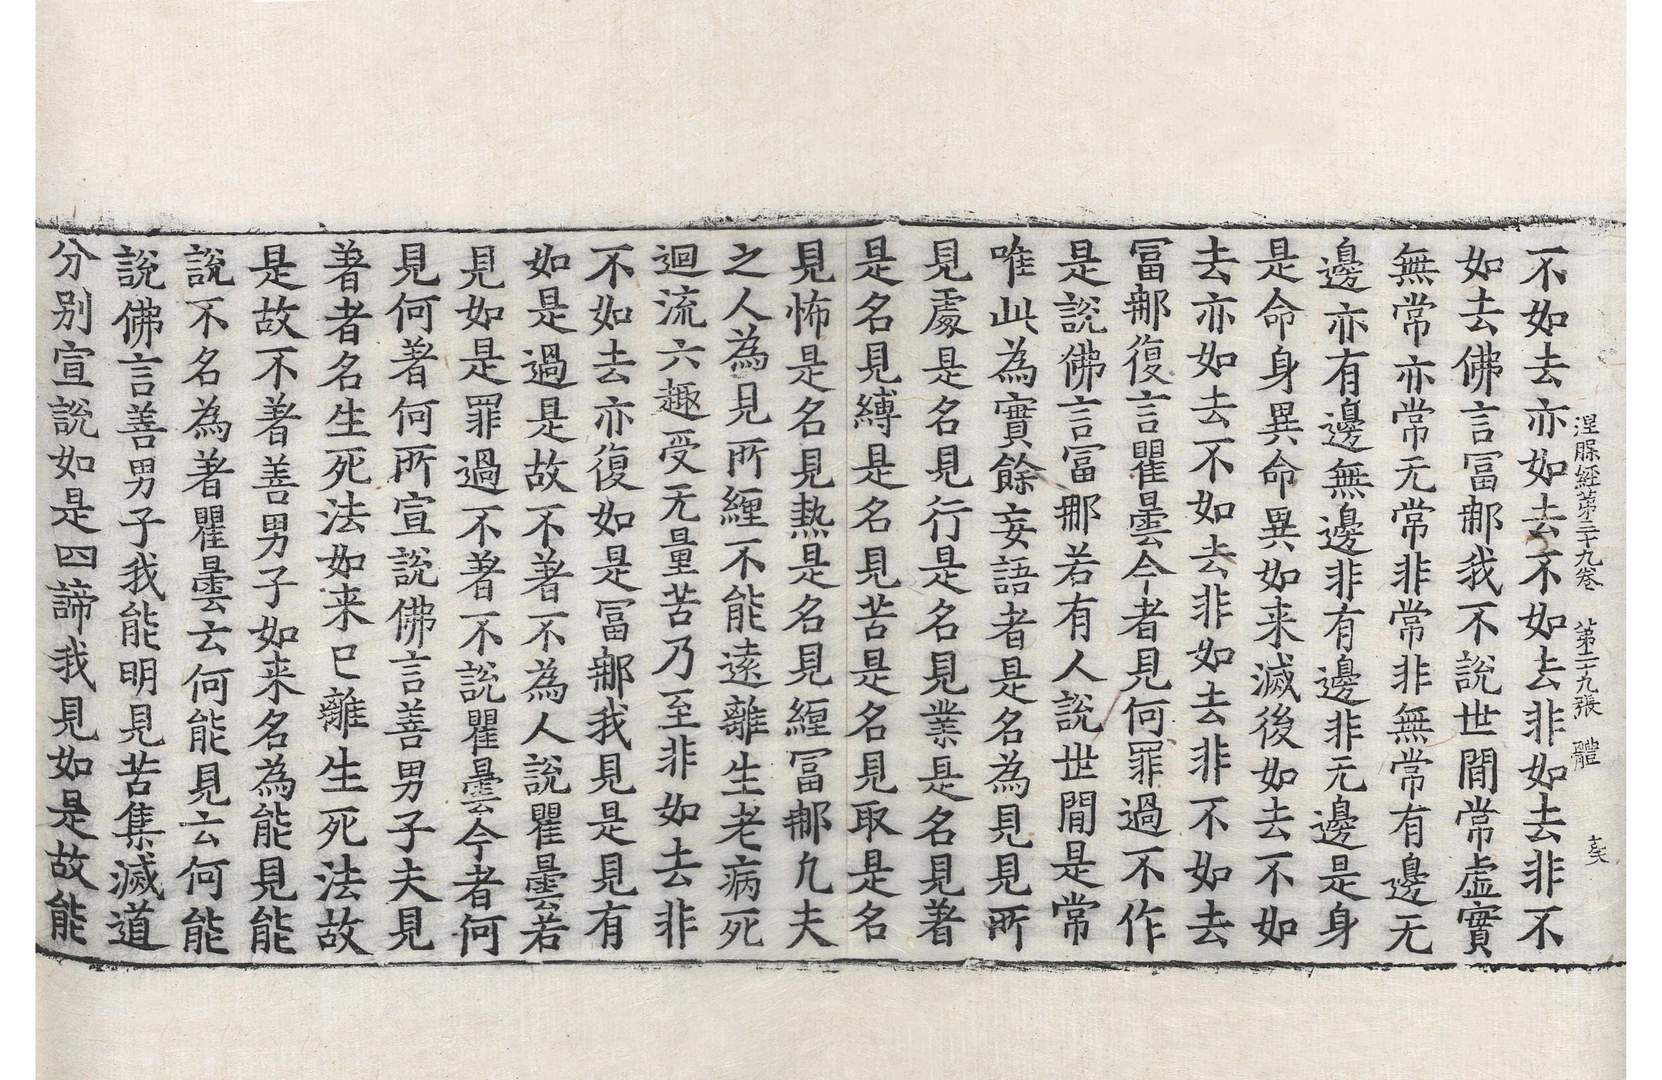 涅槃經第三十九卷 第二十九張 體
不如去亦如去不如去非如去非不
如去佛言冨那我不說世間常虛實
無常亦常无常非常非無常有邊无
邊亦有邊無邊非有邊非无邊是身
是命身異命異如来滅後如去不如
去亦如去不如去非如去非不如去
冨那復言瞿曇今者見何罪過不作
是說佛言冨那若有人說世間是常
唯此為實餘妄語者是名為見見所
見處是名見行是名見業是名見著
是名見縛是名見苦是名見取是名
見怖是名見熱是名見纏冨那凡夫
之人為見所纏不能遠離生老病死
迴流六趣受无量苦乃至非如去非
不如去亦復如是冨那我見是見有
如是過是故不著不為人說瞿曇若
見如是罪過不著不說瞿曇今者何
見何著何所宣說佛言善男子夫見
著者名生死法如来已離生死法故
是故不著善男子如来名為能見能
說不名為著瞿曇云何能見云何能
說佛言善男子我能明見苦集滅道
分别宣說如是四諦我見如是故能